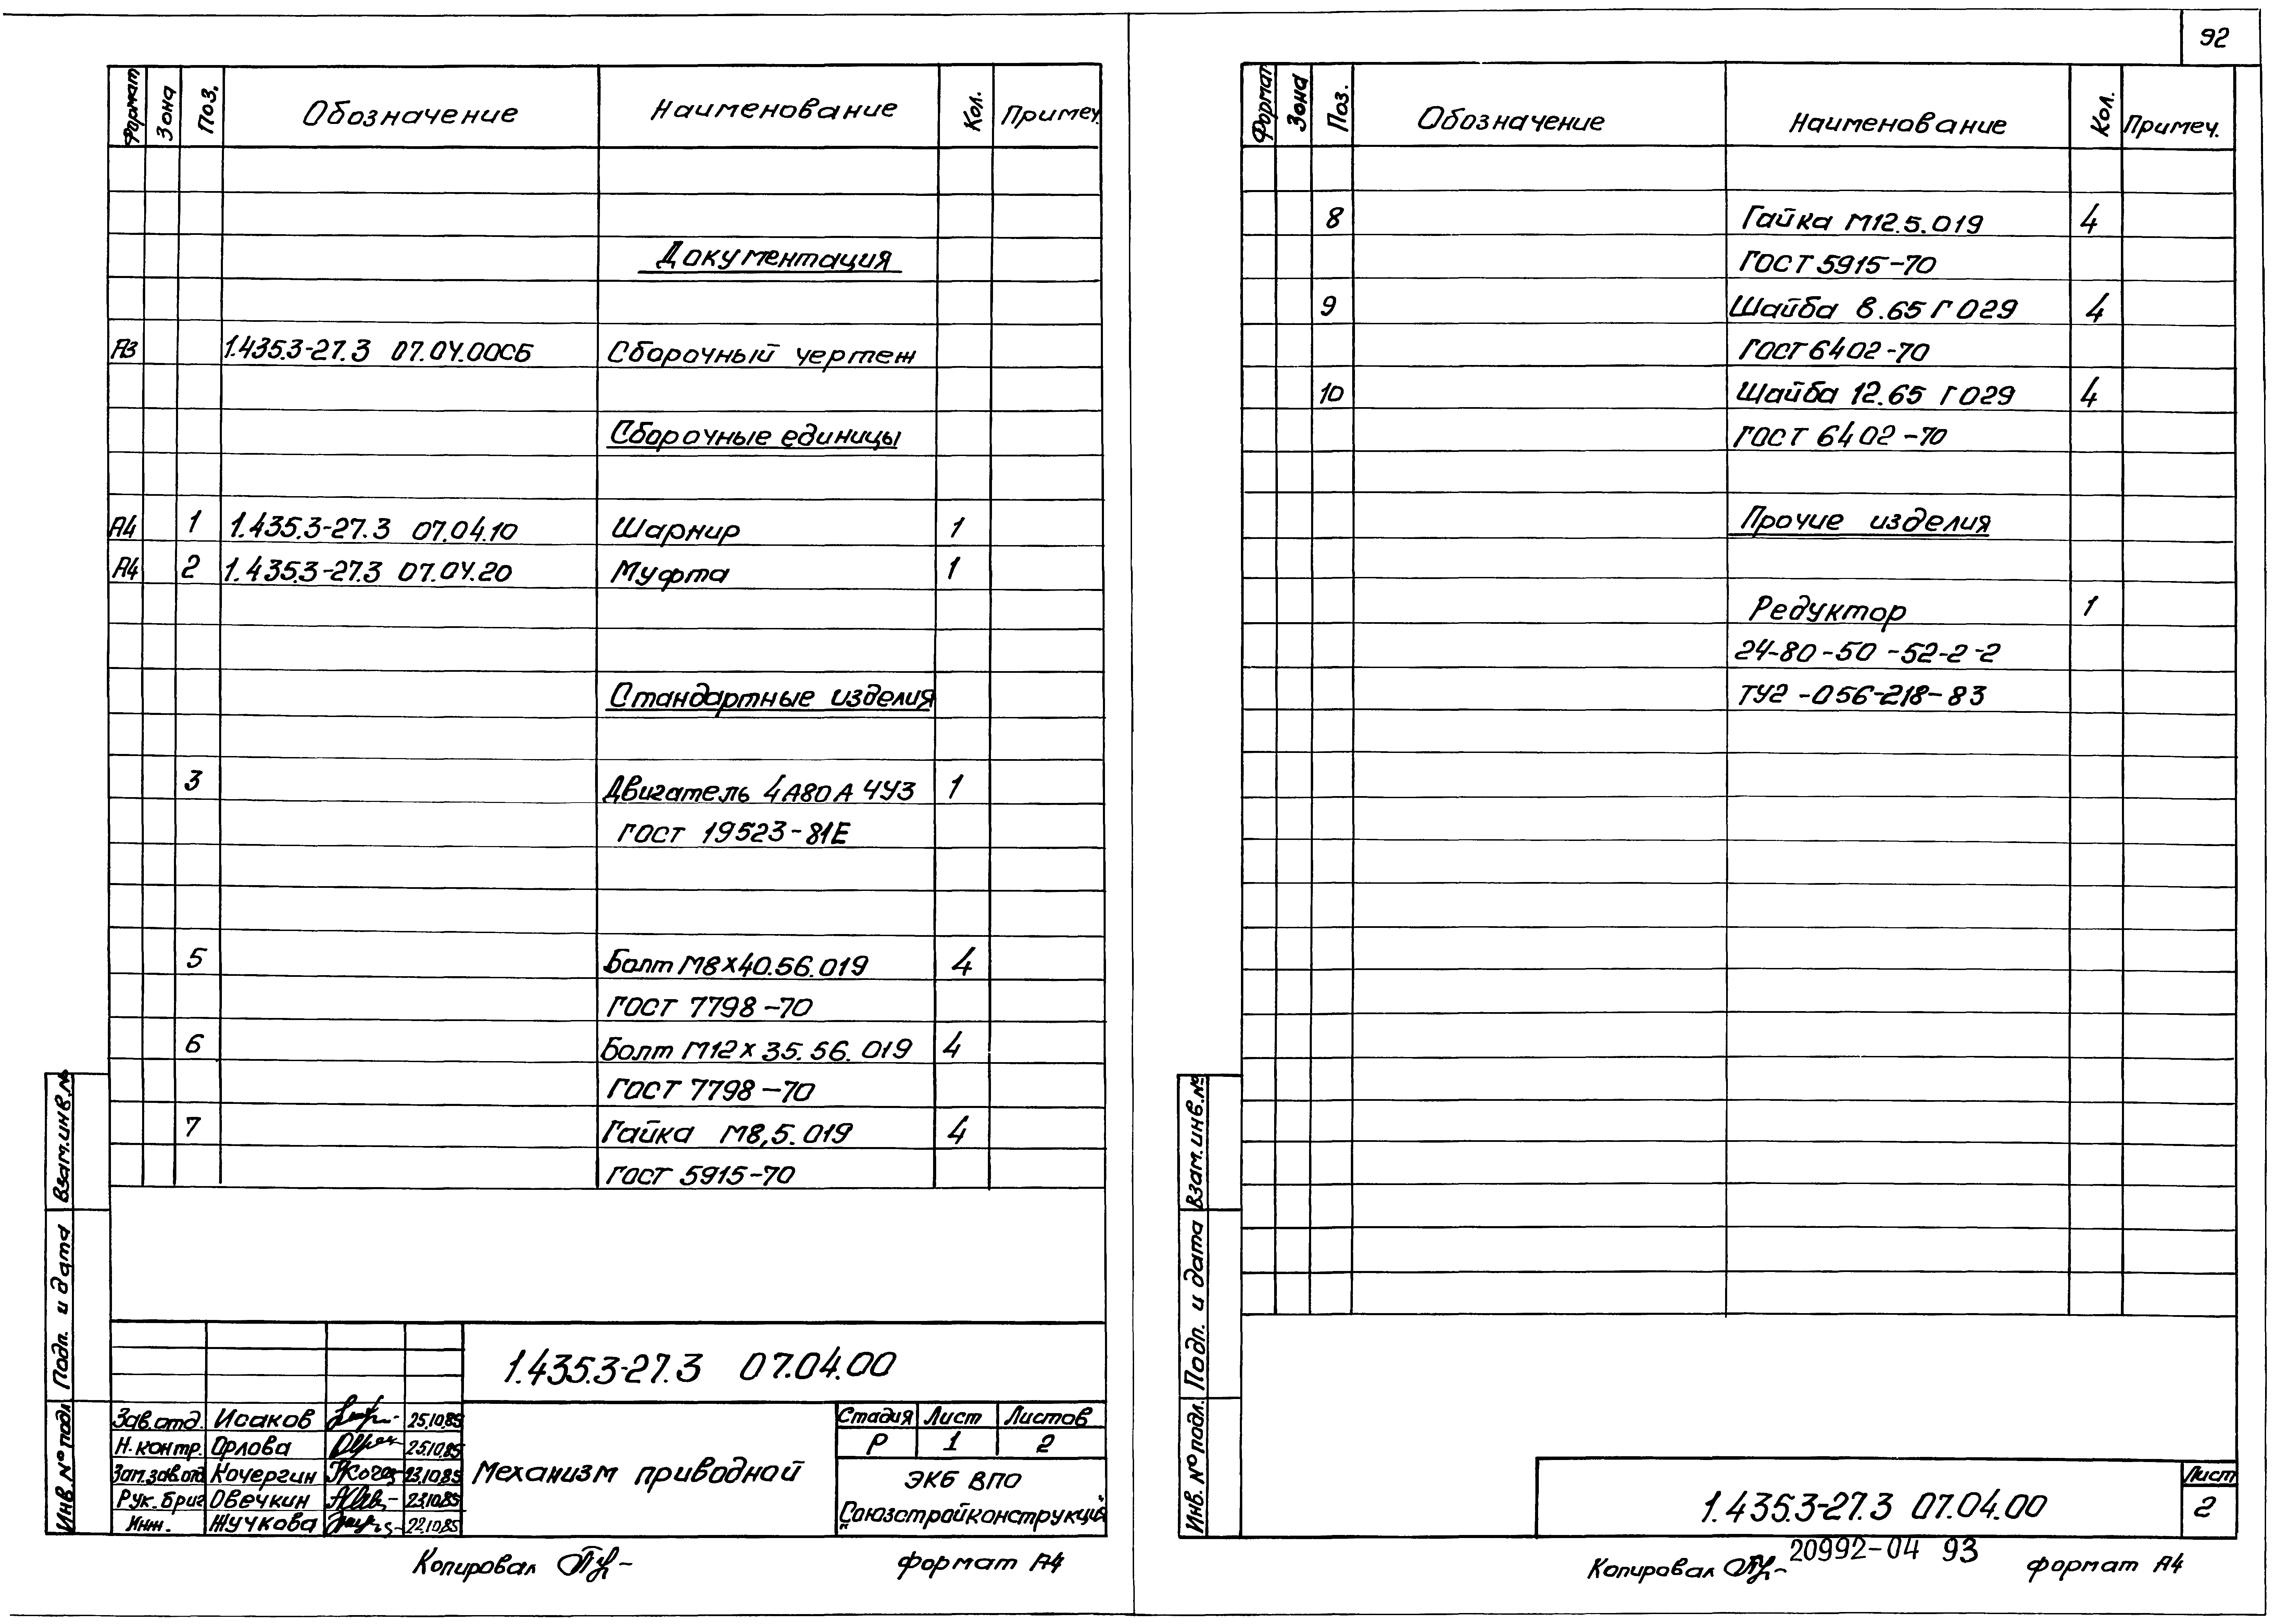 92
Формат Зона Поз. Обозначение Наименование Кол. Примеч.
Документация
А3 1.435.3-27.3 07.04.00СБ Сборочный чертеж
Сборочные единицы
А4 1 1.435.3-27.3 07.04.10 Шарнир 1
А4 2 1.435.3-27.3 07.04.20 Муфта 1
Стандартные изделия
3 Двигатель 4А80А4У3 1
ГОСТ 19523-81Е
5 Болт М8х40.56.019 4
ГОСТ 7798-70
6 Болт М12х35.56.019 4
ГОСТ 7798-70
7 Гайка М8,5.019 4
ГОСТ 5915-70
Взам.инв.№
Подп. и дата
Инв.№ подл
1.435.3-27.3 07.04.00
Зав.отд. Исаков 25.10.85
Н.контр. Орлова 25.10.85
Зам.зав.отд Кочергин 23.10.85
Рук.бриг Овечкин 23.10.85
Инж. Жучкова 22.10.85
Механизм приводной
Стадия Лист Листов
Р 1 2
ЭКБ ВПО
"Союзстройконструкция"
Копировал
формат А4
Формат Зона Поз. Обозначение Наименование Кол. Примеч.
8 Гайка М12.5.019 4
ГОСТ 5915-70
9 Шайба 8.65Г 029 4
ГОСТ 6402-70
10 Шайба 12.65Г 029 4
ГОСТ 6402-70
Прочие изделия
Редуктор 1
24-80-50-52-2-2
ТУ2-056-218-83
Взам.инв.№
Подп. и дата
Инв.№ подл.
1.435.3-27.3 07.04.00
Лист
2
Копировал
20992-04 93
формат А4